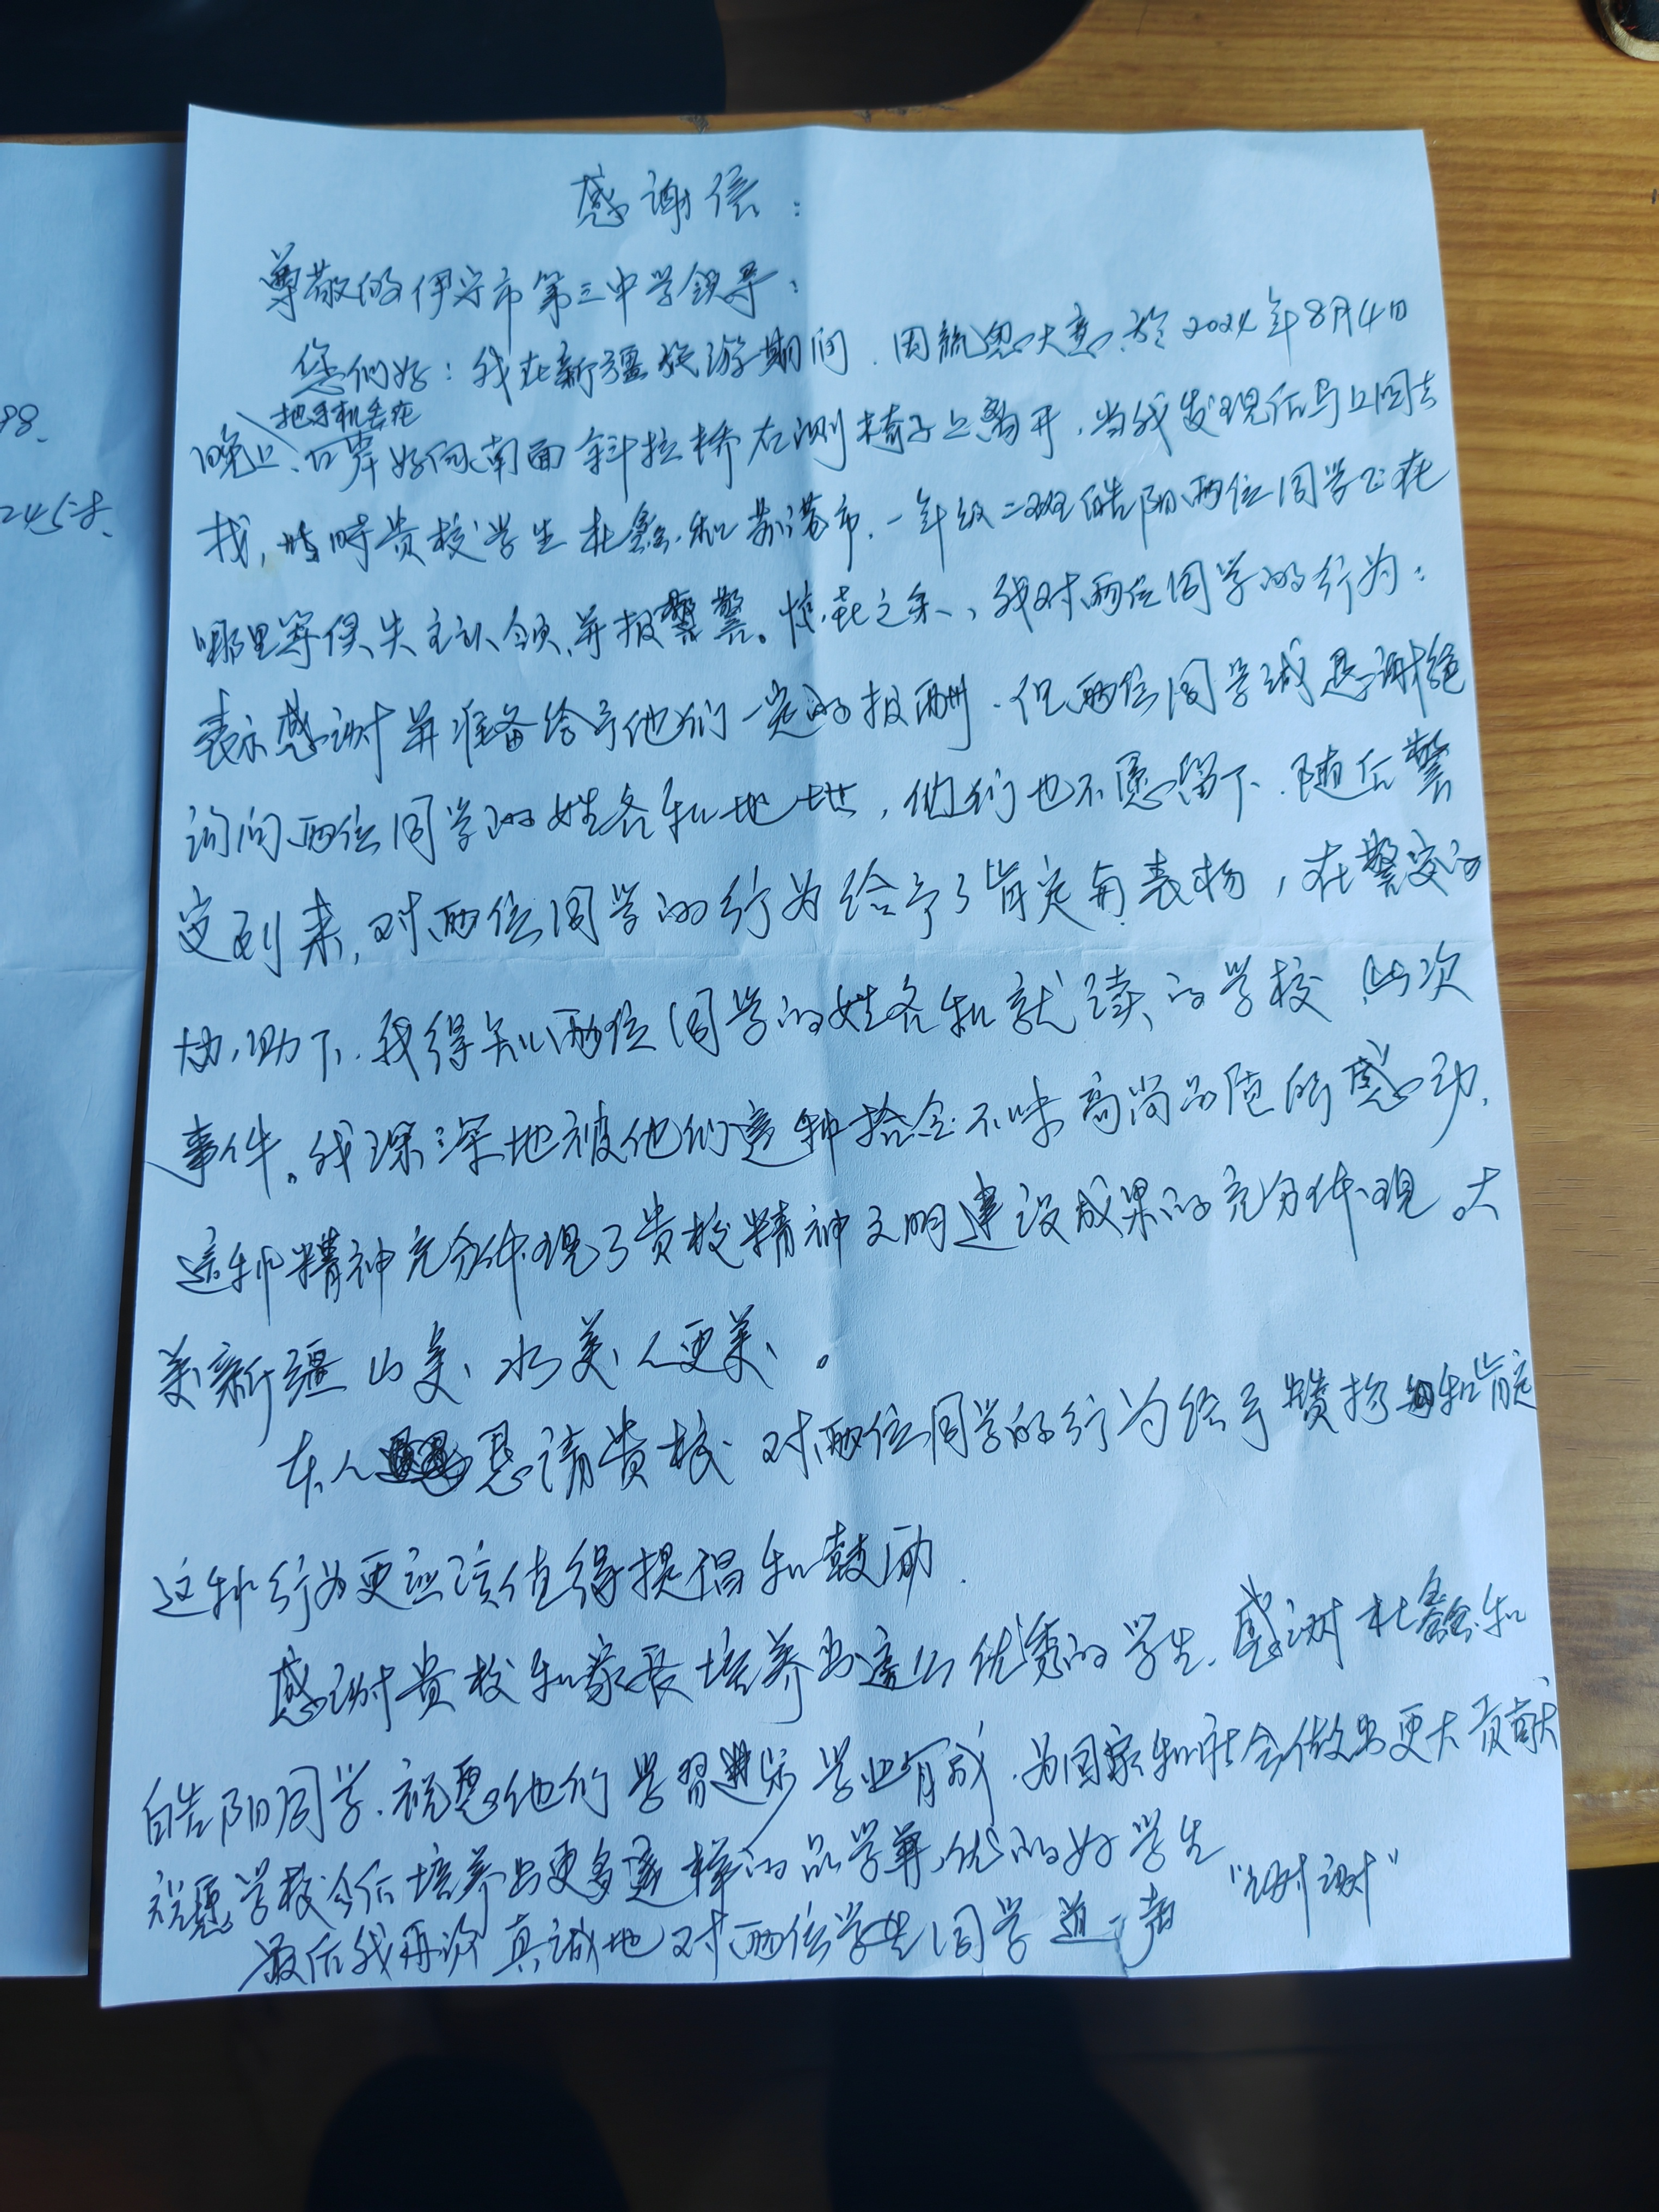 感谢信：
尊敬的伊宁市第三中学领导：
您们好：我在新疆旅游期间，因疏忽大意，于2024年8月4日
把手机丢在
晚上、口岸 南面斜拉桥右侧椅子上离开，当我发现后马上回去
找，当时贵校学生杜鑫和 市，一年级二班皓阳两位同学正在
哪里等侯失主认领，并报警。惊喜之余，我对两位同学的行为：
表示感谢并准备给予他们一定的报酬，但两位同学诚恳谢绝
询问两位同学的姓名和地址，他们也不愿留下，随后警
官到来，对两位同学的行为给予了肯定与表扬，在警官的
协助下，我得知两位同学的姓名和就读的学校，此次
事件。我深深地被他们这种拾金不昧高尚品质所感动，
这种精神充分体现了贵校精神文明建设成果的充分体现。大
美新疆山美、水美、人更美。
本人恳请贵校对两位同学的行为给予赞扬和肯定
这种行为更应该值得提倡和鼓励。
感谢贵校和家长培养出这么优秀的学生，感谢杜鑫和
皓阳同学，祝愿他们学习进步学业有成，为国家和社会做出更大贡献
祝愿学校今后培养出更多这样的品学兼优的好学生
最后我再次真诚地对两位学生同学道一声“谢谢”
98.